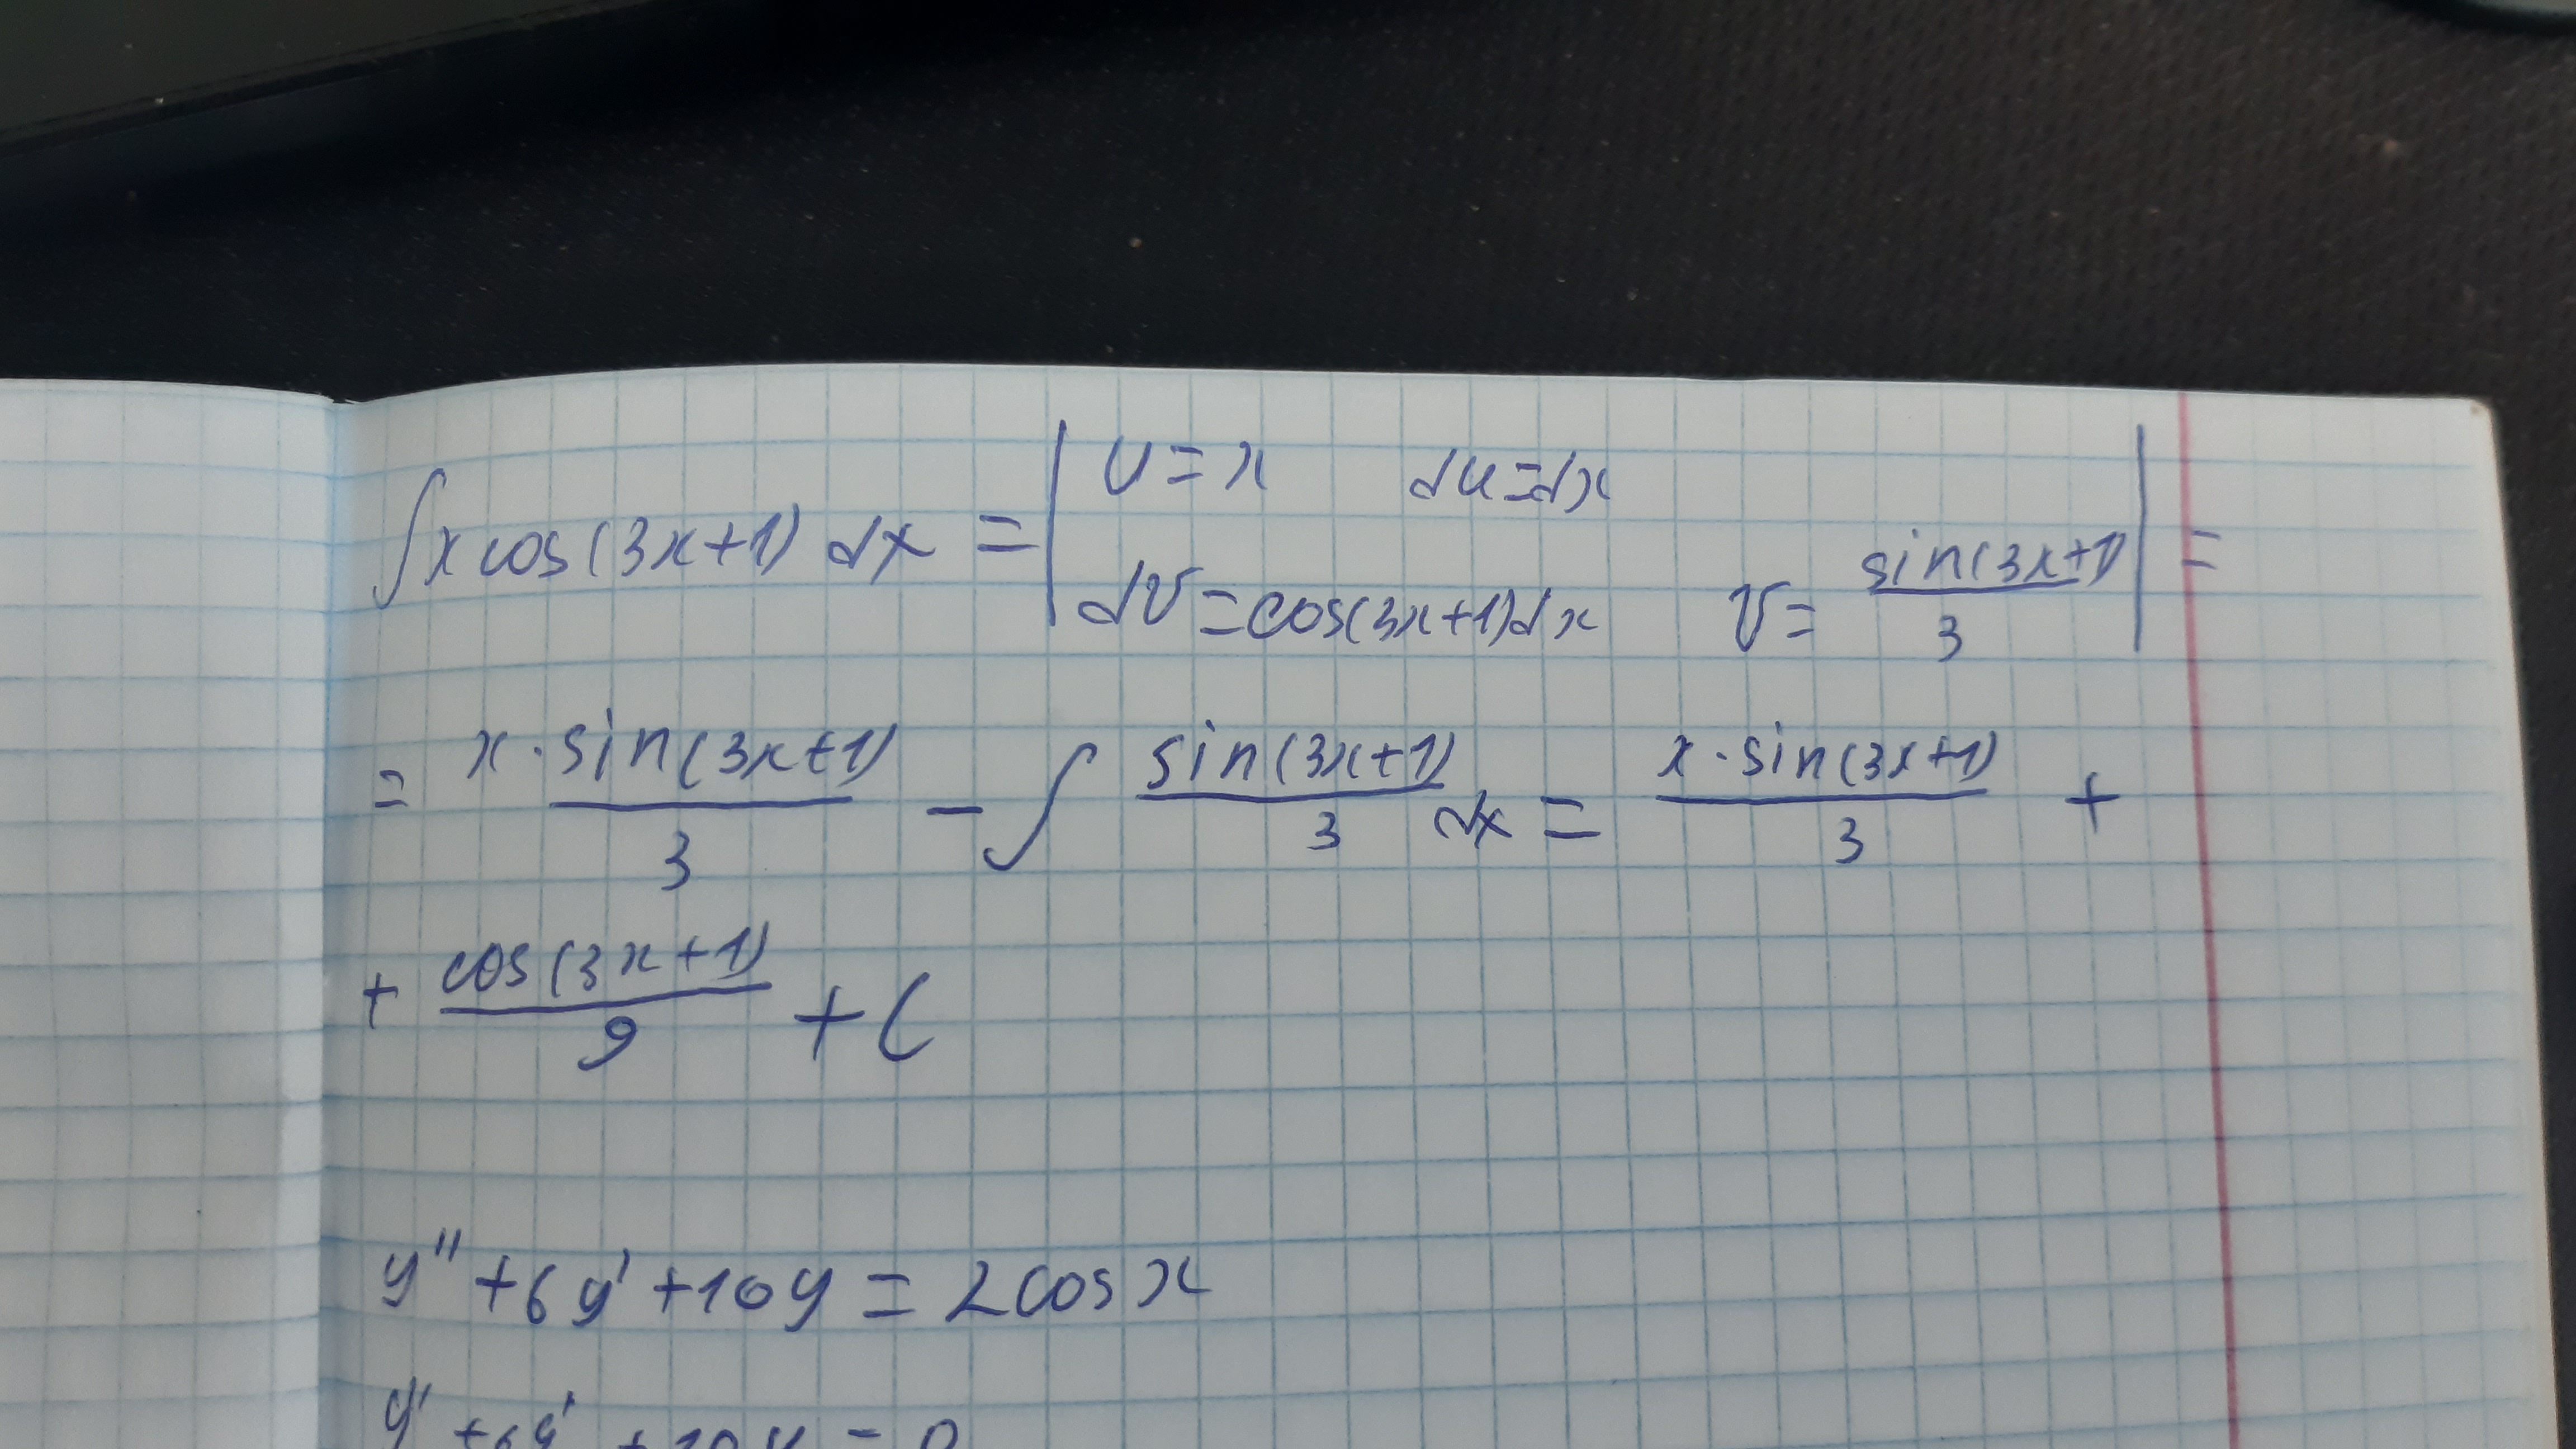 ∫x cos(3x+1) dx = | u = x   du = dx
dv = cos(3x+1)dx   v = sin(3x+1)/3 | =
= x · sin(3x+1)/3 - ∫ sin(3x+1)/3 dx = x · sin(3x+1)/3 +
+ cos(3x+1)/9 + C
y'' + 6y' + 10y = 2cos x
y'' + 6y' + 10y = 0